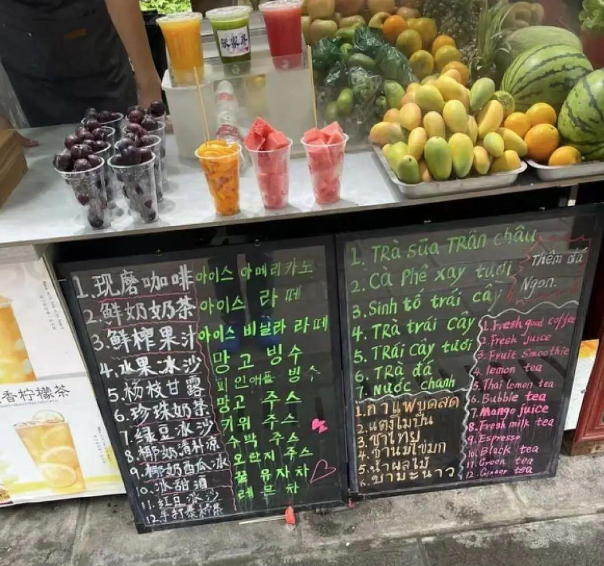 1.现磨咖啡
2.鲜奶奶茶
3.鲜榨果汁
4.水果冰沙
5.杨枝甘露
6.珍珠奶茶
7.绿豆冰沙
8.椰奶清补凉
9.椰奶西瓜冰
10.冰甜酒
11.红豆冰沙
12.手打柠檬茶
아이스 아메리카노
아이스 라떼
아이스 바닐라 라떼
망고빙수
파인애플 빙수
망고 주스
키위 주스
수박 주스
오렌지 주스
꿀 유자차
레몬차
1. TRà Sữa TRân châu
2. Cà Phê xay tươi
3. Sinh tố trái cây
4. TRà trái cây
5. TRái cây tươi
6. TRà đá
7. Nước chanh
Thêm đá
Ngon.
1.กาแฟบดสด
2.แตงโมปั่น
3.ชาไทย
4.ชานมไข่มุก
5.น้ำผลไม้
6.ชามะนาว
1. Fresh good coffee
2. Fresh Juice
3. Fruit Smoothie
4. lemon tea
5. Thai lemon tea
6. Bubble tea
7. Mango juice
8. Fresh milk tea
9. Espresso
10. Black tea
11. Green tea
12. Ginger tea
香柠檬茶